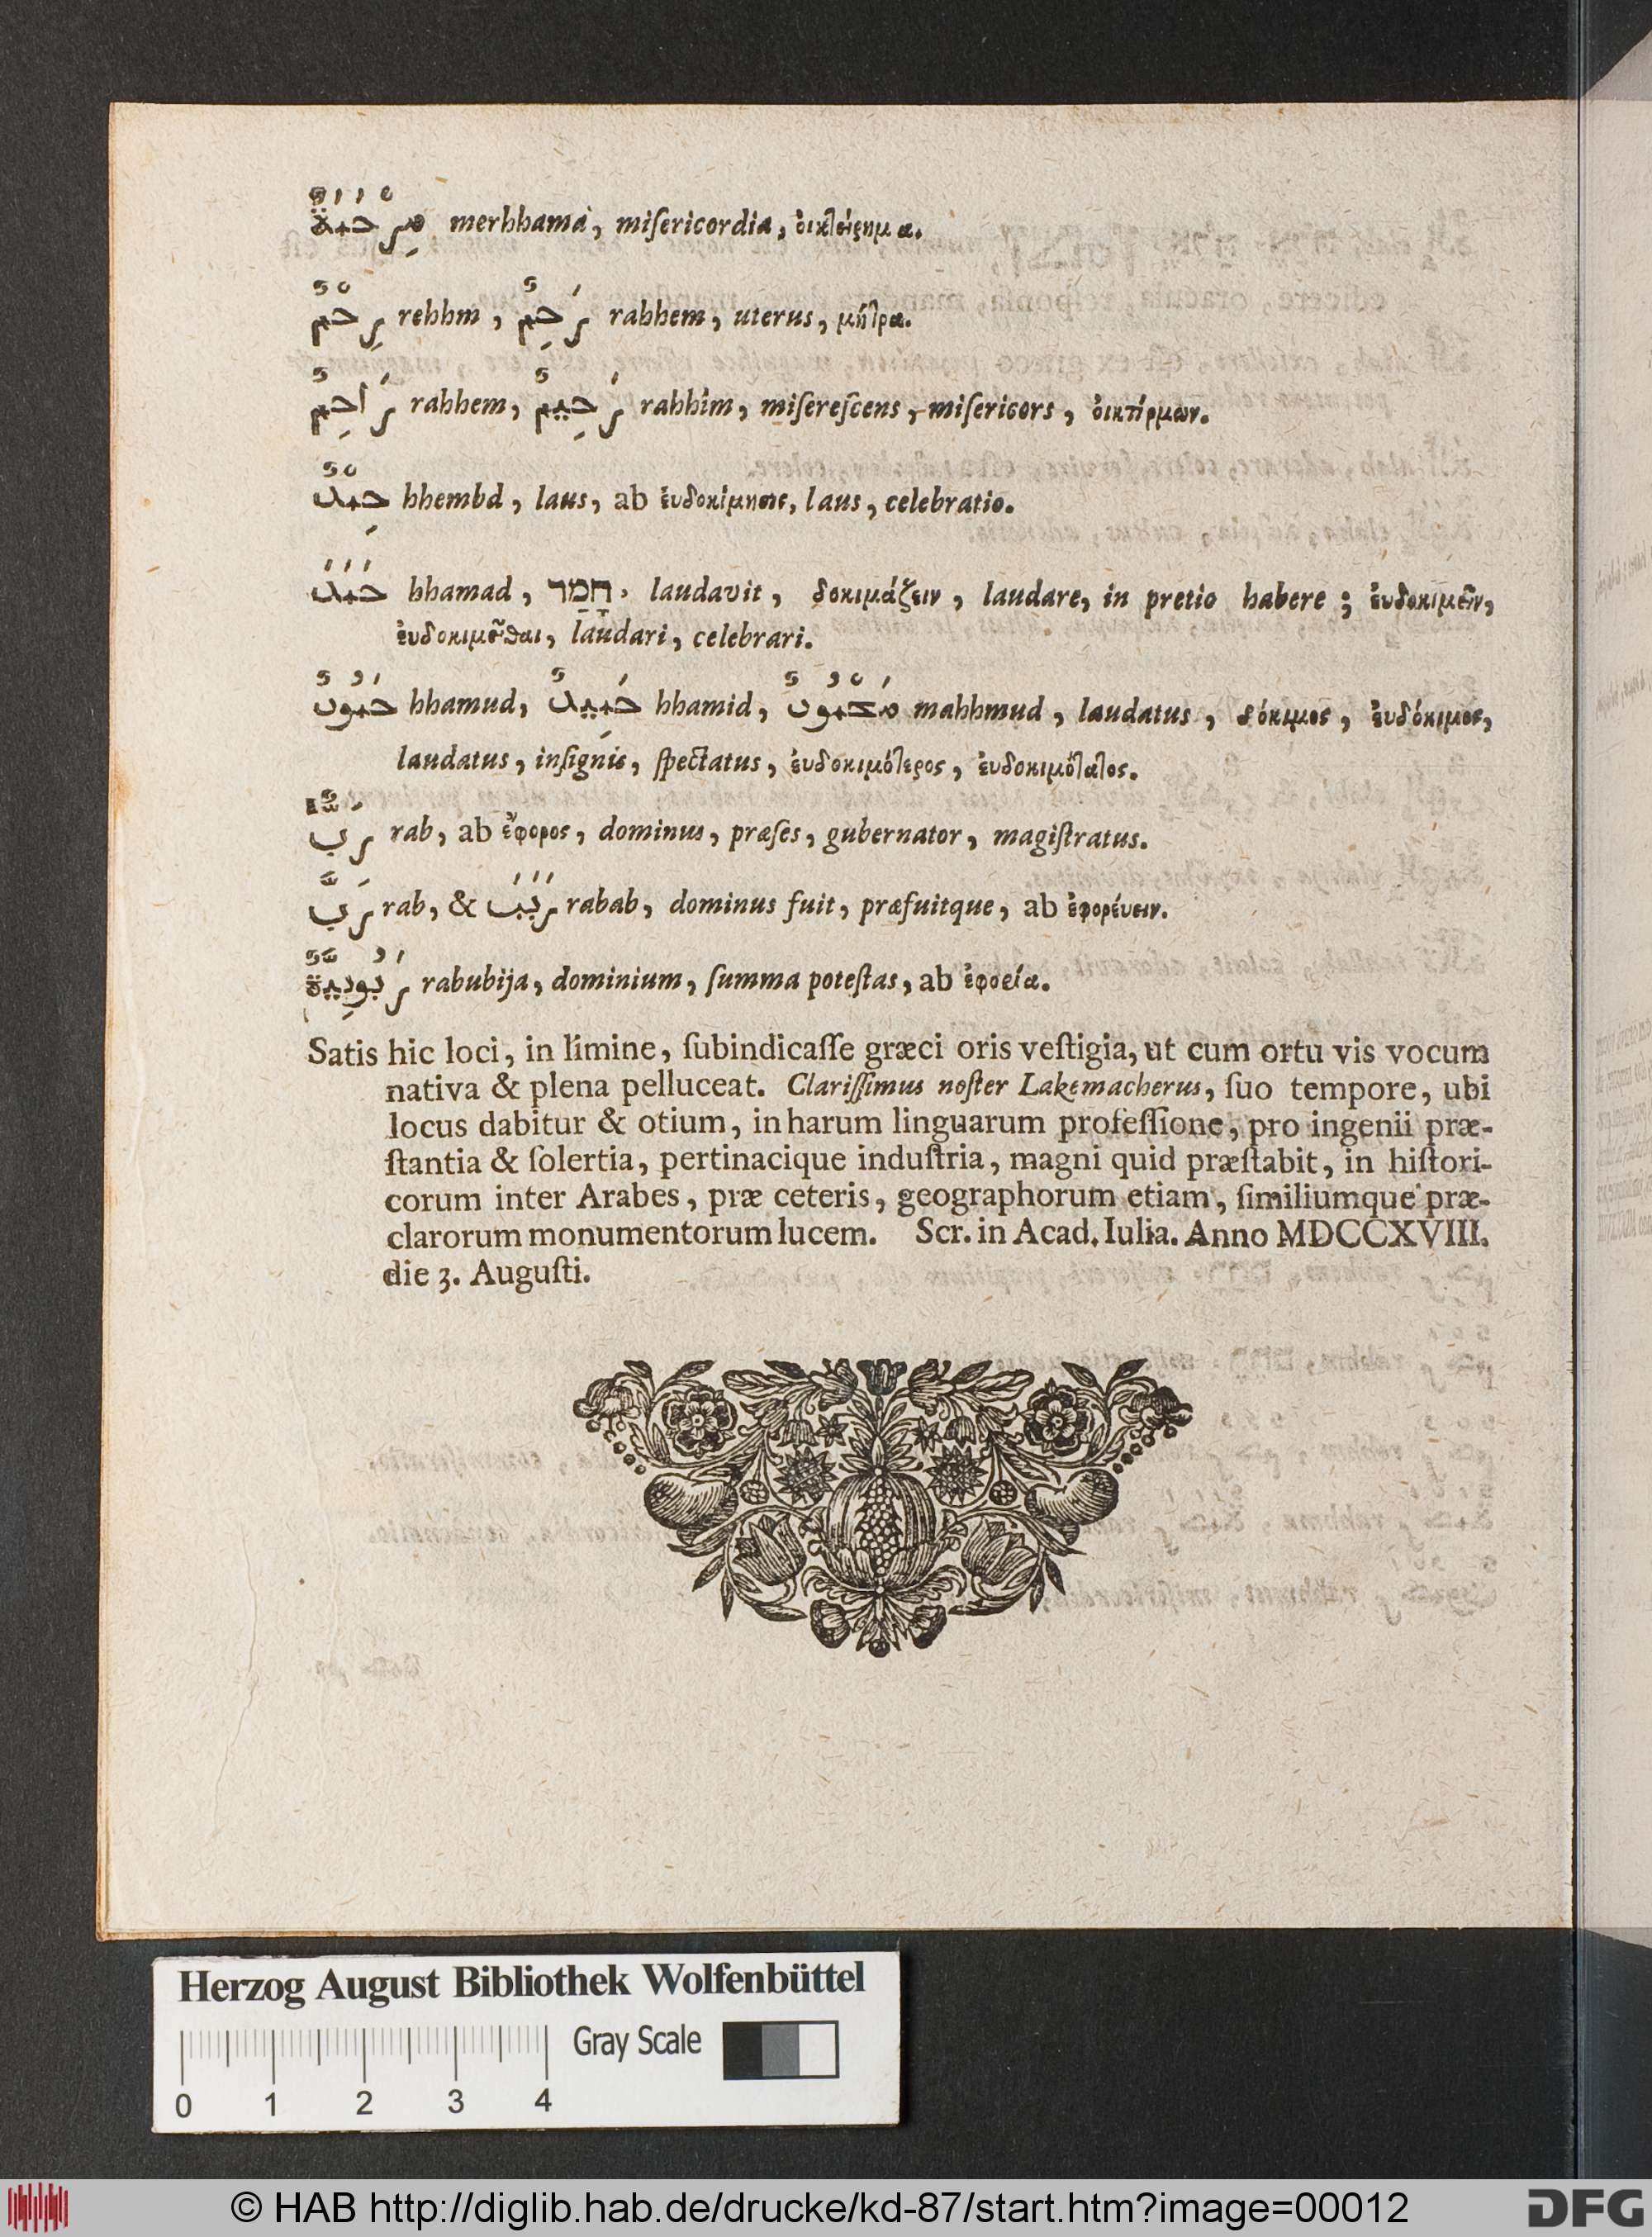 مِرْحَمَةٌ merhhama, miſericordia,
رِحْمٌ rehhm, رَحِمٌ rahhem, uterus, μήτρα.
رَاحِمٌ rahhem, رَحِيمٌ rahhîm, miſereſcens, miſericors, ὀικτίρμων.
حِمْدٌ hhembd, laus, ab ἐυδοκίμησις, laus, celebratio.
حَمَدَ hhamad, laudavit, δοκιμάζειν, laudare, in pretio habere; ἐυδοκιμεῖν,
ἐυδοκιμεῖσθαι, laudari, celebrari.
حَمُودٌ hhamud, حَمِيدٌ hhamid, مَحْمُودٌ mahhmud, laudatus, δόκιμος, ἐυδόκιμος,
laudatus, inſignis, ſpectatus, ἐυδοκιμότερος, ἐυδοκιμότατος.
رَبٌّ rab, ab ἔφορος, dominus, præſes, gubernator, magiſtratus.
رَبَّ rab, & رَبَبَ rabab, dominus fuit, præfuitque, ab ἐφορέυειν.
رَبُوبِيَّةٌ rabubija, dominium, ſumma poteſtas, ab
Satis hic loci, in limine, ſubindicaſſe græci oris veſtigia, ut cum ortu vis vocum
nativa & plena pelluceat. Clariſſimus noſter Lakemacherus, ſuo tempore, ubi
locus dabitur & otium, in harum linguarum profeſſione, pro ingenii præ-
ſtantia & ſolertia, pertinacique induſtria, magni quid præſtabit, in hiſtori-
corum inter Arabes, præ ceteris, geographorum etiam, ſimiliumque præ-
clarorum monumentorum lucem. Scr. in Acad. Iulia. Anno MDCCXVIII.
die 3. Auguſti.
Herzog August Bibliothek Wolfenbüttel
Gray Scale
0 1 2 3 4
© HAB http://diglib.hab.de/drucke/kd-87/start.htm?image=00012
DFG